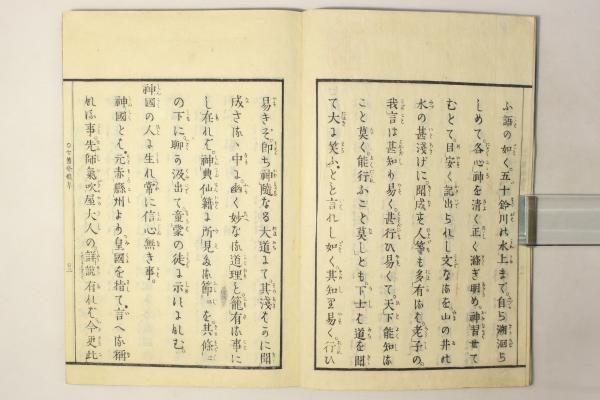 ふ語の如く五十鈴川は水上まで自ら溯洄ら
しめて各心神を清く正く滌ぎ明め神習せて
むとて目安く記出られし文なるを山の井此
水の甚淺げに聞成す人等も多有るを老子の
我言は甚知り易く甚行ひ易くて天下能知る
こと莫く能行ふこと莫しとも下士は道を聞
て大に笑ふとと言れし如く其知り易く行ひ
易きぞ即ち神隨なる大道にて其淺そうに聞
成さるる中に幽く妙なる道理を籠有る事に
し在れば神典仙籍に所見る節〻を其條〻
の下に聊か汲出て童蒙の徒に示になむ
神國の人に生れ常に信心無き事
神國とは元赤縣州より皇國を稱て言へる稱
なる事先師氣吹屋大人の詳說有れば今更此